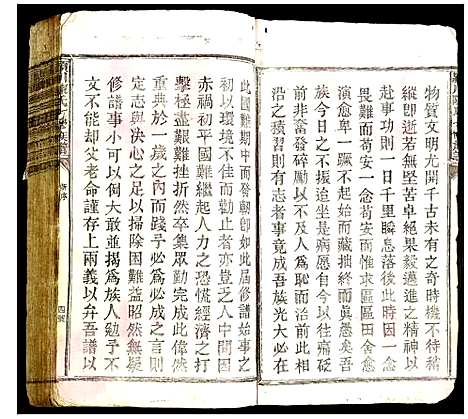 物質文明光開千古未有之奇時機不可
縱卽逝若無堅苦卓絕果毅邁進之精神以
赴事功則一日千里瞬息落後矣今夫人
畏難而苟安一念苟安而惟求區區田舍愈
演愈卑一蹶不起始而藏拙終而眞愚矣吾
族今日之不振追坐是病自今以往痛砭
前非奮發碎勵以不及人爲恥而沿前此相
沿之積習則有志者事竟成吾族光大必
此國難期中而發朝卽如此屆修譜始事之
初以環境不佳而勸止者亦豈乏人中間因
赤禍初平國難繼起人力之恐慌經濟之打
擊極盡艱難挫折然卒集眾勤完成此偉然
重典於一歲之內而踐予必爲必成之豫
定志與決心之足以掃除困難蓋昭然無疑
修譜事小可以倒大敢並揭爲族人勉予不
文不能却父老命謹存上兩義以弁吾譜以
新序
四